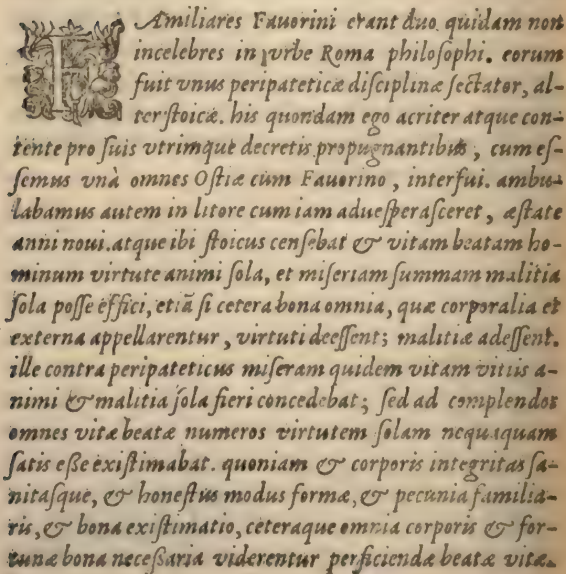 FAmiliares Fauorini erant duo quidam non
incelebres in vrbe Roma philoſophi. eorum
fuit vnus peripateticæ diſciplinæ ſectator, al-
ter ſtoicæ. his quondam ego acriter atque con-
tente pro ſuis vtrimque decretis propugnantibus, cum eſ-
ſemus vnà omnes Oſtiæ cum Fauorino, interfui. ambu-
labamus autem in litore cum iam adueſperaſceret, æſtate
anni noui. atque ibi ſtoicus cenſebat & vitam beatam ho-
minum virtute animi ſola, et miſeriam ſummam malitia
ſola poſſe effici, etiã ſi cetera bona omnia, quæ corporalia et
externa appellarentur, virtuti deeſſent; malitiæ adeſſent.
ille contra peripateticus miſeram quidem vitam vitiis a-
nimi & malitia ſola fieri concedebat; ſed ad complendos
omnes vitæ beatæ numeros virtutem ſolam nequaquam
ſatis eſſe exiſtimabat. quoniam & corporis integritas ſa-
nitaſque, & honeſtus modus formæ, & pecunia familia-
ris, & bona exiſtimatio, ceteraque omnia corporis & for-
tunæ bona neceſſaria viderentur perficiendæ beatæ vitæ.